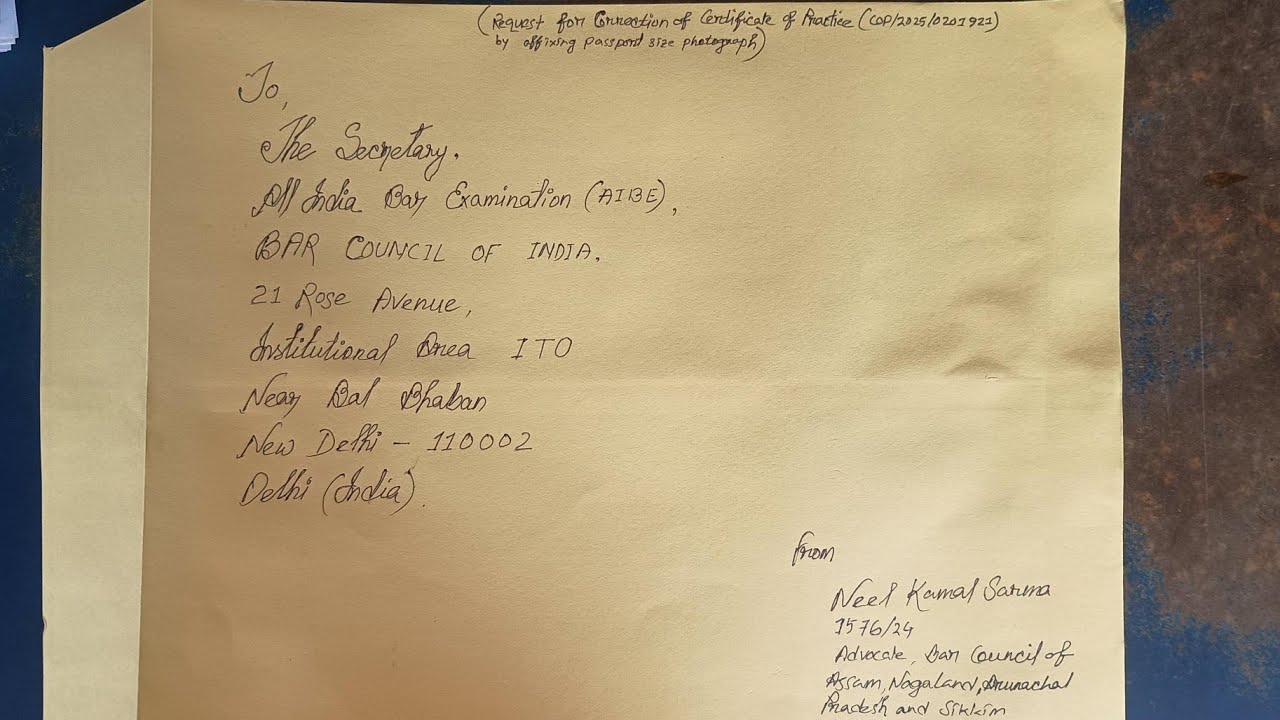 (Request for Correction of Certificate of Practice (COP/2025/0201921)
by affixing passport size photograph)
To,
The Secretary.
All India Bar Examination (AIBE),
BAR COUNCIL OF INDIA.
21 Rose Avenue,
Institutional Area ITO
Near Bal Bhaban
New Delhi - 110002
Delhi (India).
From
Neel Kamal Sarma
1576/24
Advocate, Bar Council of
Assam, Nagaland, Arunachal
Pradesh and Sikkim